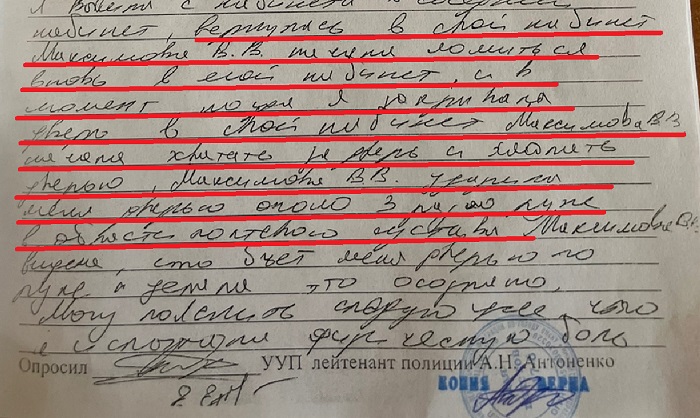 я вышла с кабинета в соседний
кабинет, вернулась в свой кабинет
Максимова В.В. начала ломиться
вновь в мой кабинет, и в
момент когда я закрывала
дверь в свой кабинет Максимова В.В
начала хватать за дверь и хлопать
дверью, Максимова В.В. ударила
меня дверью около 3 раз по руке
в области локтевого сустава Максимова В.В.
видела, что бьет меня дверью по
руке и делала это осознано,
Могу пояснить от ударов, что
я испытала физическую боль
Опросил УУП лейтенант полиции А.Н. Антоненко
КОПИЯ ВЕРНА